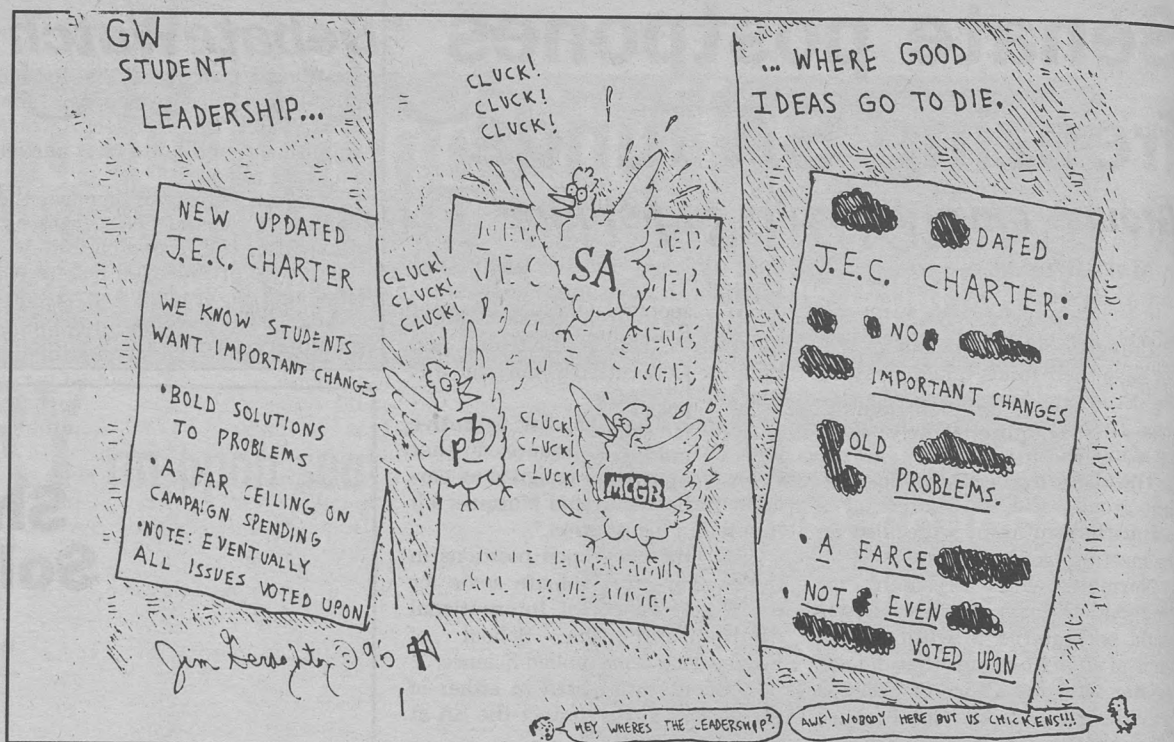 GW
STUDENT
LEADERSHIP...
NEW UPDATED
J.E.C. CHARTER
WE KNOW STUDENTS
WANT IMPORTANT CHANGES
•BOLD SOLUTIONS
TO PROBLEMS
•A FAR CEILING ON
CAMPAIGN SPENDING
•NOTE: EVENTUALLY
ALL ISSUES VOTED UPON
Jim Geraghty © 96
CLUCK!
CLUCK!
CLUCK!
SA
CLUCK!
CLUCK!
CLUCK!
pb
CLUCK!
CLUCK!
CLUCK!
MCGB
... WHERE GOOD
IDEAS GO TO DIE.
DATED
J.E.C. CHARTER:
NO
IMPORTANT CHANGES
OLD
PROBLEMS.
•A FARCE
•NOT EVEN
VOTED UPON
HEY WHERE'S THE LEADERSHIP?
AWK! NOBODY HERE BUT US CHICKENS!!!